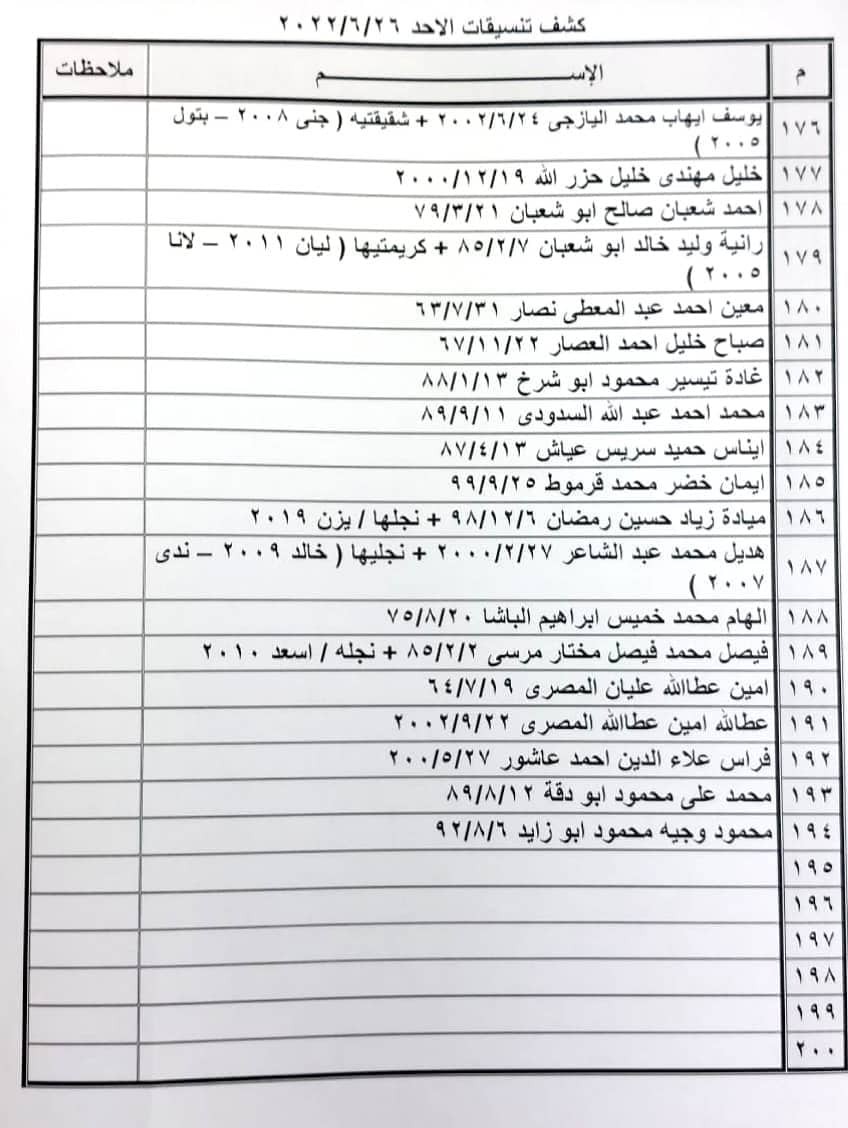 كشف تنسيقات الاحد ٢٠٢٢/٦/٢٦
م الإســـــــــــــم ملاحظات
١٧٦ يوسف ايهاب محمد اليازجى ٢٠٠٢/٦/٢٤ + شقيقتيه ( جنى ٢٠٠٨ – بتول
٢٠٠٥ )
١٧٧ خليل مهندى خليل حزر الله ٢٠٠٠/١٢/١٩
١٧٨ احمد شعبان صالح ابو شعبان ٧٩/٣/٢١
١٧٩ رانية وليد خالد ابو شعبان ٨٥/٢/٧ + كريمتيها ( ليان ٢٠١١ – لانا
٢٠٠٥ )
١٨٠ معين احمد عبد المعطى نصار ٦٣/٧/٣١
١٨١ صباح خليل احمد العصار ٦٧/١١/٢٢
١٨٢ غادة تيسير محمود ابو شرخ ٨٨/١/١٣
١٨٣ محمد احمد عبد الله السدودى ٨٩/٩/١١
١٨٤ ايناس حميد سريس عياش ٨٧/٤/١٣
١٨٥ ايمان خضر محمد قرموط ٩٩/٩/٢٥
١٨٦ ميادة زياد حسين رمضان ٩٨/١٢/٦ + نجلها / يزن ٢٠١٩
١٨٧ هديل محمد عبد الشاعر ٢٠٠٠/٢/٢٧ + نجليها ( خالد ٢٠٠٩ – ندى
٢٠٠٧ )
١٨٨ الهام محمد خميس ابراهيم الباشا ٧٥/٨/٢٠
١٨٩ فيصل محمد فيصل مختار مرسى ٨٥/٢/٢ + نجله / اسعد ٢٠١٠
١٩٠ امين عطاالله عليان المصرى ٦٤/٧/١٩
١٩١ عطالله امين عطاالله المصرى ٢٠٠٢/٩/٢٢
١٩٢ فراس علاء الدين احمد عاشور ٢٠٠/٥/٢٧
١٩٣ محمد على محمود ابو دقة ٨٩/٨/١٢
١٩٤ محمود وجيه محمود ابو زايد ٩٢/٨/٦
١٩٥
١٩٦
١٩٧
١٩٨
١٩٩
٢٠٠